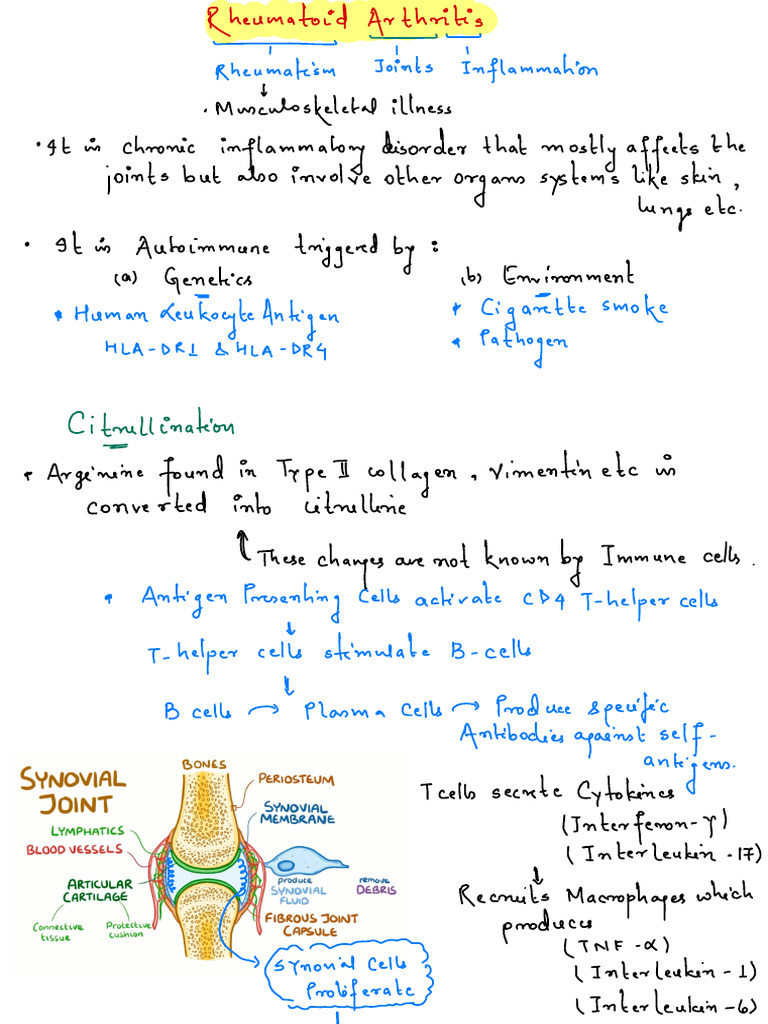 Rheumatoid Arthritis
Rheumatism Joints Inflammation
↓
. Musculoskeletal illness
• It is chronic inflammatory disorder that mostly affects the
joints but also involve other organs systems like skin,
lungs etc.
• It is Autoimmune triggered by :
(a) Genetics (b) Environment
* Human Leukocyte Antigen * Cigarette smoke
HLA-DR1 & HLA-DR4 * Pathogen
Citrullination
* Argenine found in Type II collagen, Vimentin etc is
converted into citrulline
These changes are not known by Immune cells.
• Antigen Presenting Cells activate CD4 T-helper cells
↓
T-helper cells stimulate B-cells
↓
B cells → Plasma Cells → Produce specific
Antibodies against self-
antigens.
SYNOVIAL
JOINT
BONES
PERIOSTEUM
SYNOVIAL
MEMBRANE
LYMPHATICS
BLOOD VESSELS
ARTICULAR
CARTILAGE
Connective
tissue
Protective
cushion
produce
SYNOVIAL
FLUID
remove
DEBRIS
FIBROUS JOINT
CAPSULE
Synovial Cells
Proliferate
T cells secrete Cytokines
(Interferon-γ)
(Interleukin-17)
↓
Recruits Macrophages which
produces
(TNF-α)
(Interleukin-1)
(Interleukin-6)